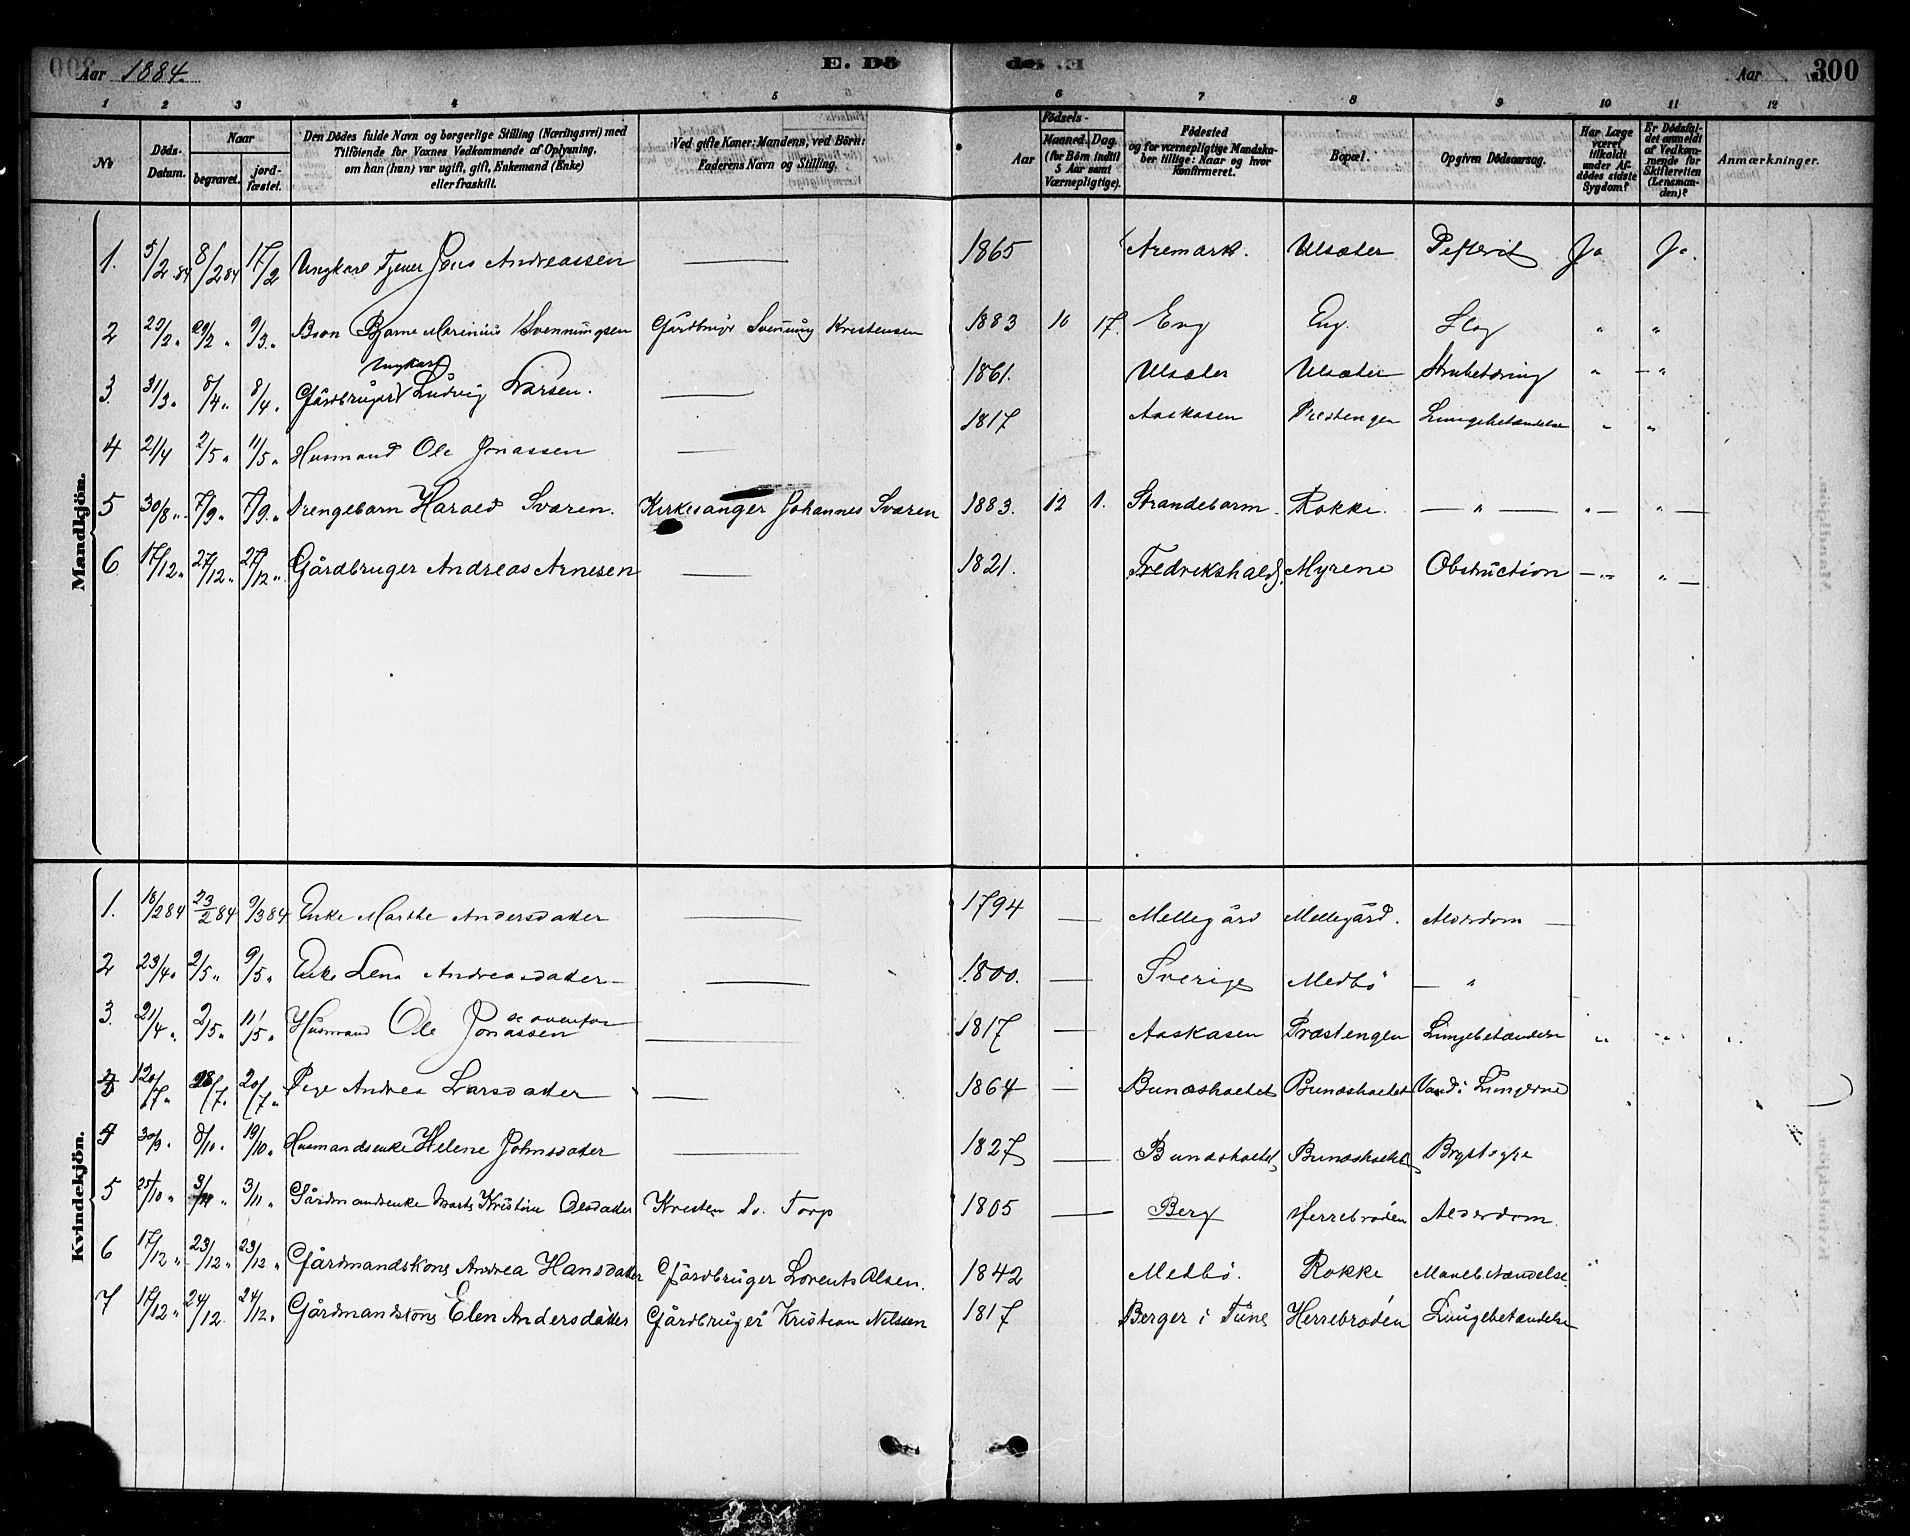 Aar 1884.
E. Dö
de. E
Aar
300
1 2 3 4 5 6 7 8 9 10 11 12
No
Döds-Datum.
Naar
begravet.
jordfæstet.
Den Dödes fulde Navn og borgerlige Stilling (Næringsvei) med
Tilföiende for Voxnes Vedkommende af Oplysning,
om han (hun) var ugift, gift, Enkemand (Enke)
eller fraskilt.
Ved gifte Koner: Mandens, ved Börn:
Faderens Navn og Stilling.
Födsels-
Aar
Maaned. Dag.
(for Börn indtil
5 Aar samt
Værnepligtige).
Födested
og for værnepligtige Mandska-
ber tillige: Naar og hvor
Konfirmeret.
Bopæl.
Opgiven Dödsaarsag.
Har Læge
været
tilkaldt
under Af-
dödes sidste
Sygdom?
Er Dödsfal-
det anmeldt
af Vedkom-
mende for
Skifteretten
(Lensman-
den)?
Anmærkninger.
Mandkjön.
1. 5/2 84 8/2 84 17/2 Ungkarl Tjener Jens Andreassen — 1865 Aremark. Ulsæter Ja Ja.
2 29/2 " 9/3. " Barn Bjarne Marinius Svenningsen Gårdbrugr Svenning Kristensen 1883 10 17. Eng Eng. " "
Ungkarl
3. 31/3 " 8/4 " Gårdbruger Ludvig Larsen. — 1861. Ulsæter Ulsæter Strubehoste " "
4 21/4 2/5 " 11/5 " Husmand Ole Jonassen — 1817 Aaskasen Prestengen Lungebetændelse " "
5 30/8 " 7/9 " 7/9. " Drengebarn Harald Svaren. Kirkesanger Johannes Svaren 1883. 12 1. Strandebarm. Rokke. — " — " — " —
6 17/12 " 27/12 " 27/12 " Gårdbruger Andreas Arnesen — 1821. Fredrikshald. Myrene Obstruction — " — " —
Kvindekjön.
1. 18/2 84 23/2 84 9/3 84 Enke Marthe Andersdatter — 1794 — Mellegård Mellegård. Alderdom —
2 23/4 " 2/5 " 9/5 " Enke Lena Andreasdatter — 1800. — Sverige Medbö — "
3. 21/4 " 2/5 " 11/5 " Husmand Ole Jonassen se ovenfor — 1817 — Aaskasen Præstengen Lungebetændelse " " "
3 20/7 " Pige Andrea Larsdatter — 1864 — Vand i Lungerne
4 30/9. 8/10. 19/10 " Husmandsenke Helene Johnsdatter — 1827 — Brystsyge
5 25/10 " 3/11 " 3/11 " Gårdmandsenke Marte Kristine Olsdatter Kristen Torp 1805 — Berg Herrebröden Alderdom.
6 17/12 " 23/12 " 23/12 " Gårdmandskone Andrea Hansdatter Gårdbruger Lorents Olsen. 1842 Medbö. Rokke Mavebetændelse. "
7 17/12 " 24/12. 24/12. " Gårdmandskone Elen Andersdatter Gårdbruger Kristian Nilssen 1817 Berger i Tune Herrebröden Lungebetændelse